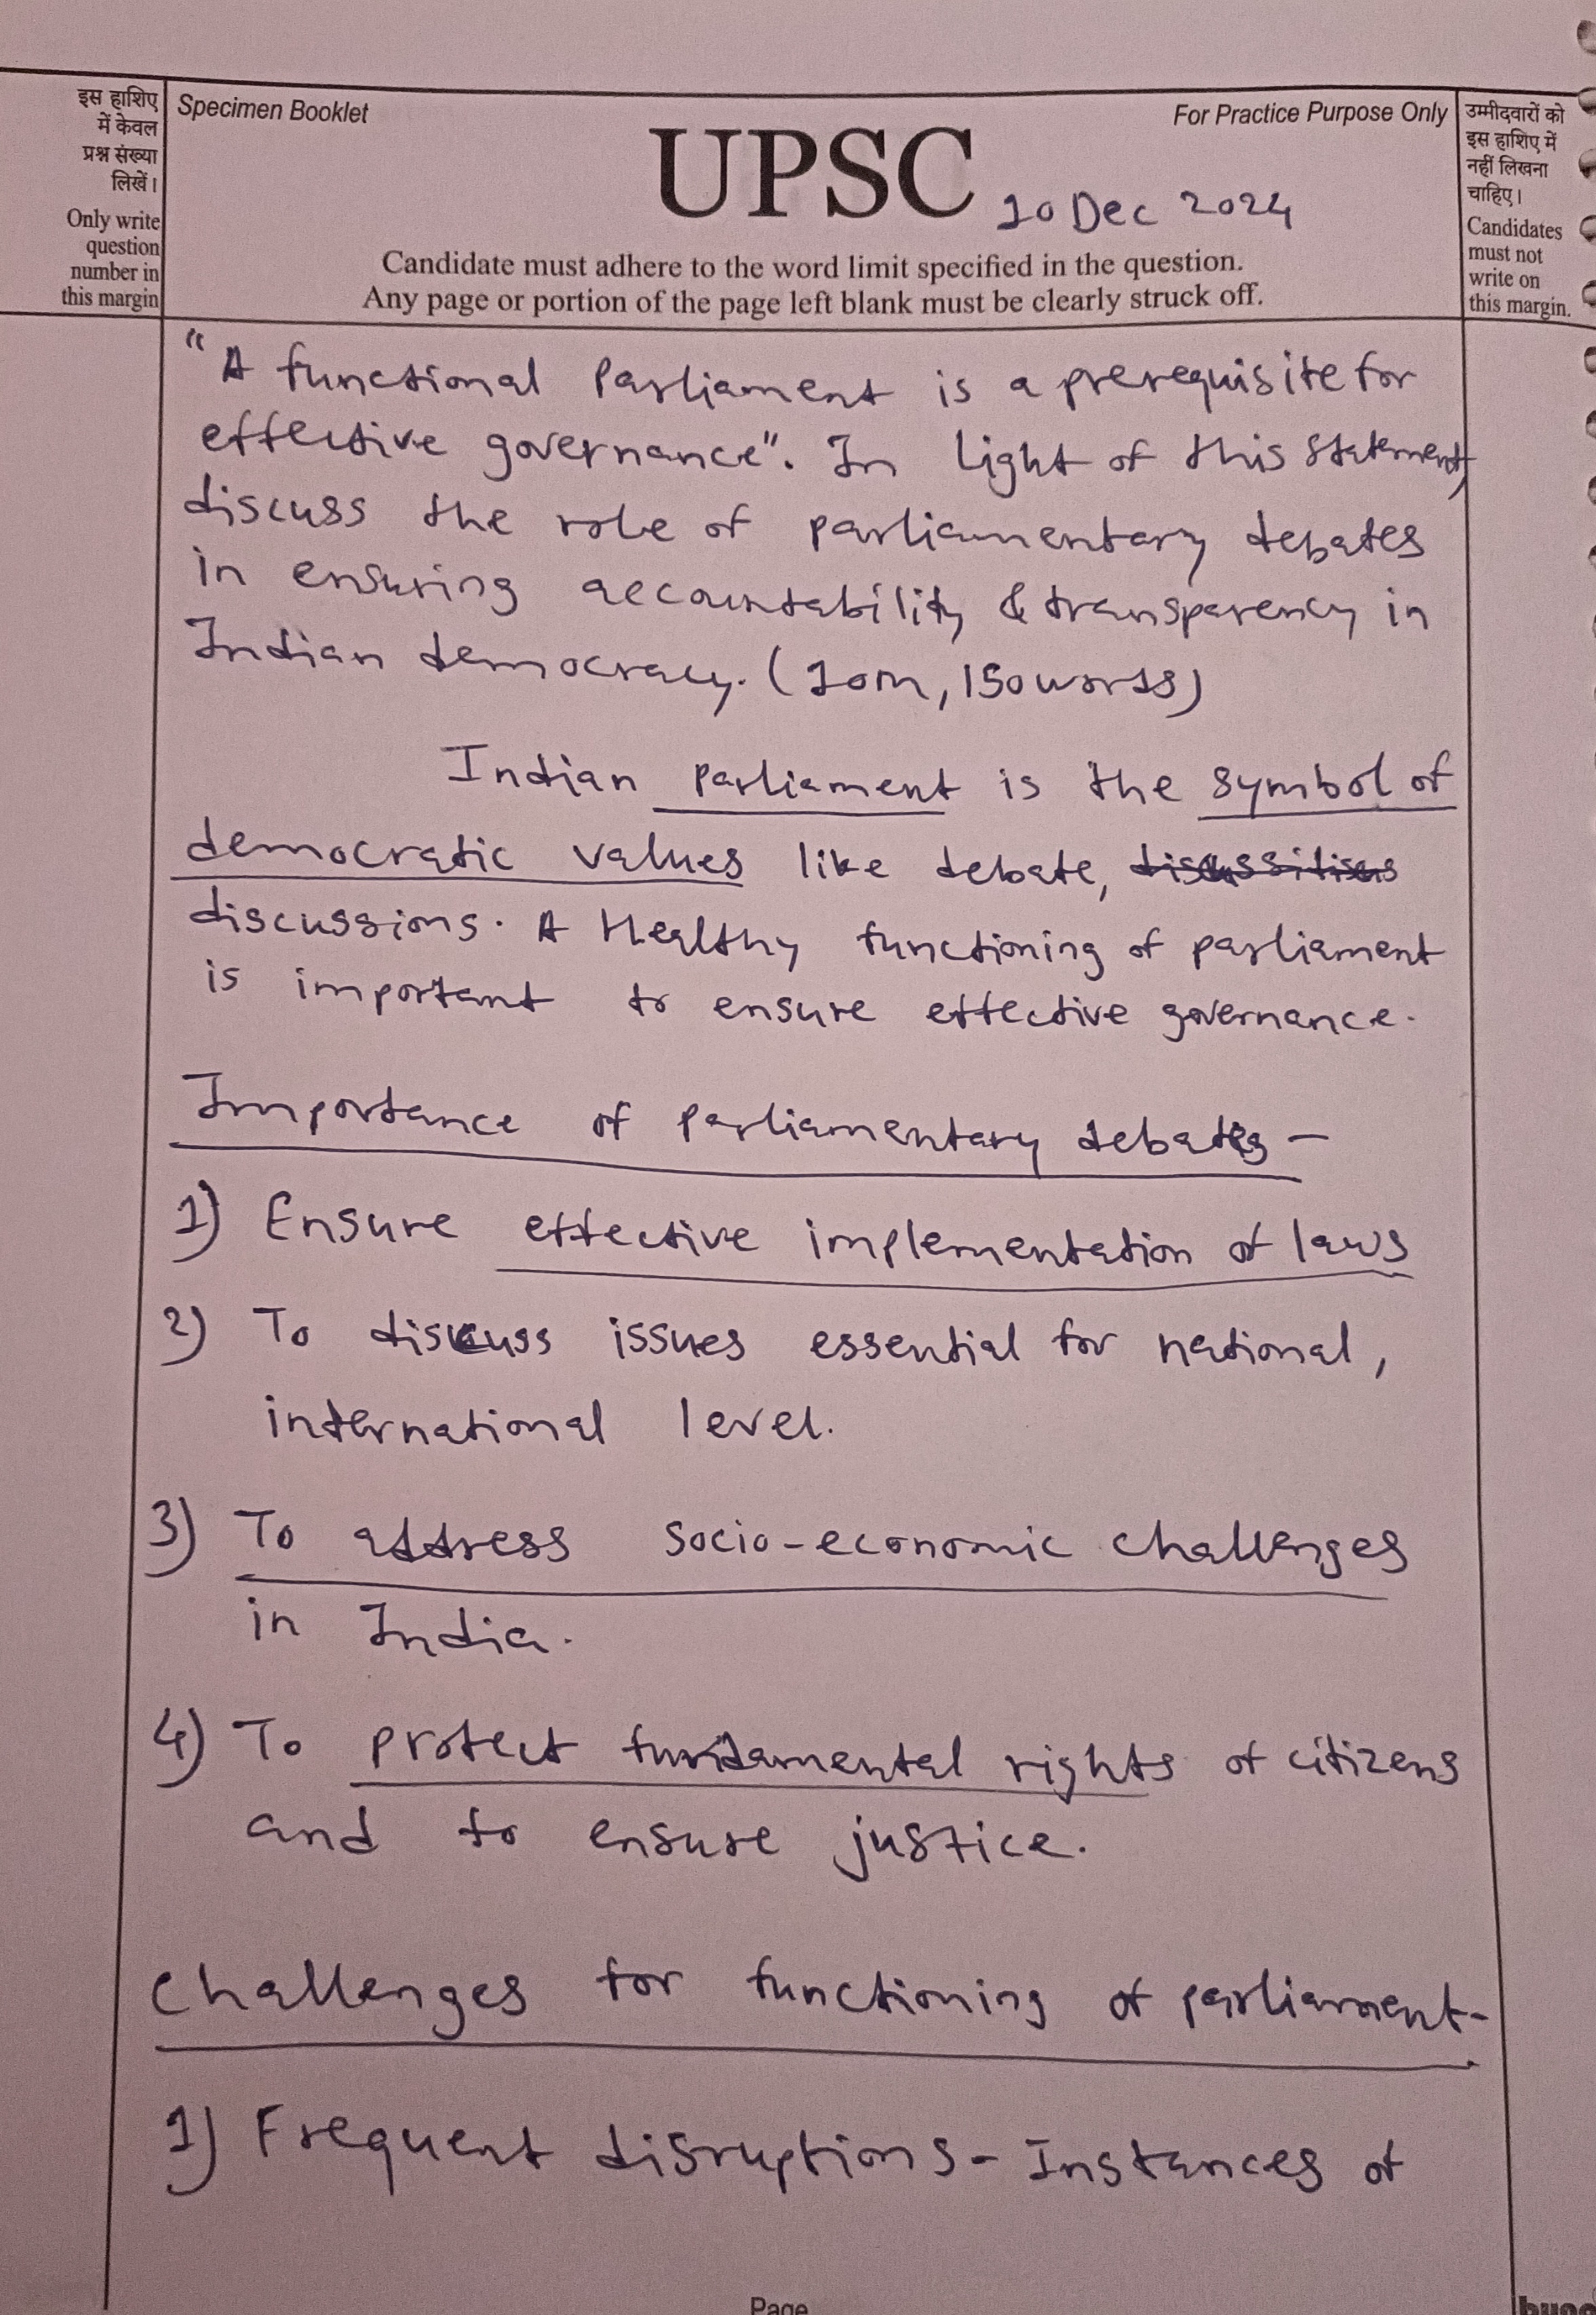 इस हाशिए
में केवल
प्रश्न संख्या
लिखें।
Only write
question
number in
this margin
Specimen Booklet
For Practice Purpose Only
UPSC
10 Dec 2024
Candidate must adhere to the word limit specified in the question.
Any page or portion of the page left blank must be clearly struck off.
उम्मीदवारों को
इस हाशिए में
नहीं लिखना
चाहिए।
Candidates
must not
write on
this margin.
"A functional Parliament is a prerequisite for
effective governance". In light of this statement,
discuss the role of parliamentary debates
in ensuring accountability & transparency in
Indian democracy. (10m, 150 words)
Indian parliament is the symbol of
democratic values like debate,
discussions. A Healthy functioning of parliament
is important to ensure effective governance.
Importance of parliamentary debates -
1) Ensure effective implementation of laws
2) To discuss issues essential for national,
international level.
3) To address socio-economic challenges
in India.
4) To protect fundamental rights of citizens
and to ensure justice.
Challenges for functioning of parliament-
1) Frequent disruptions - Instances of
Page